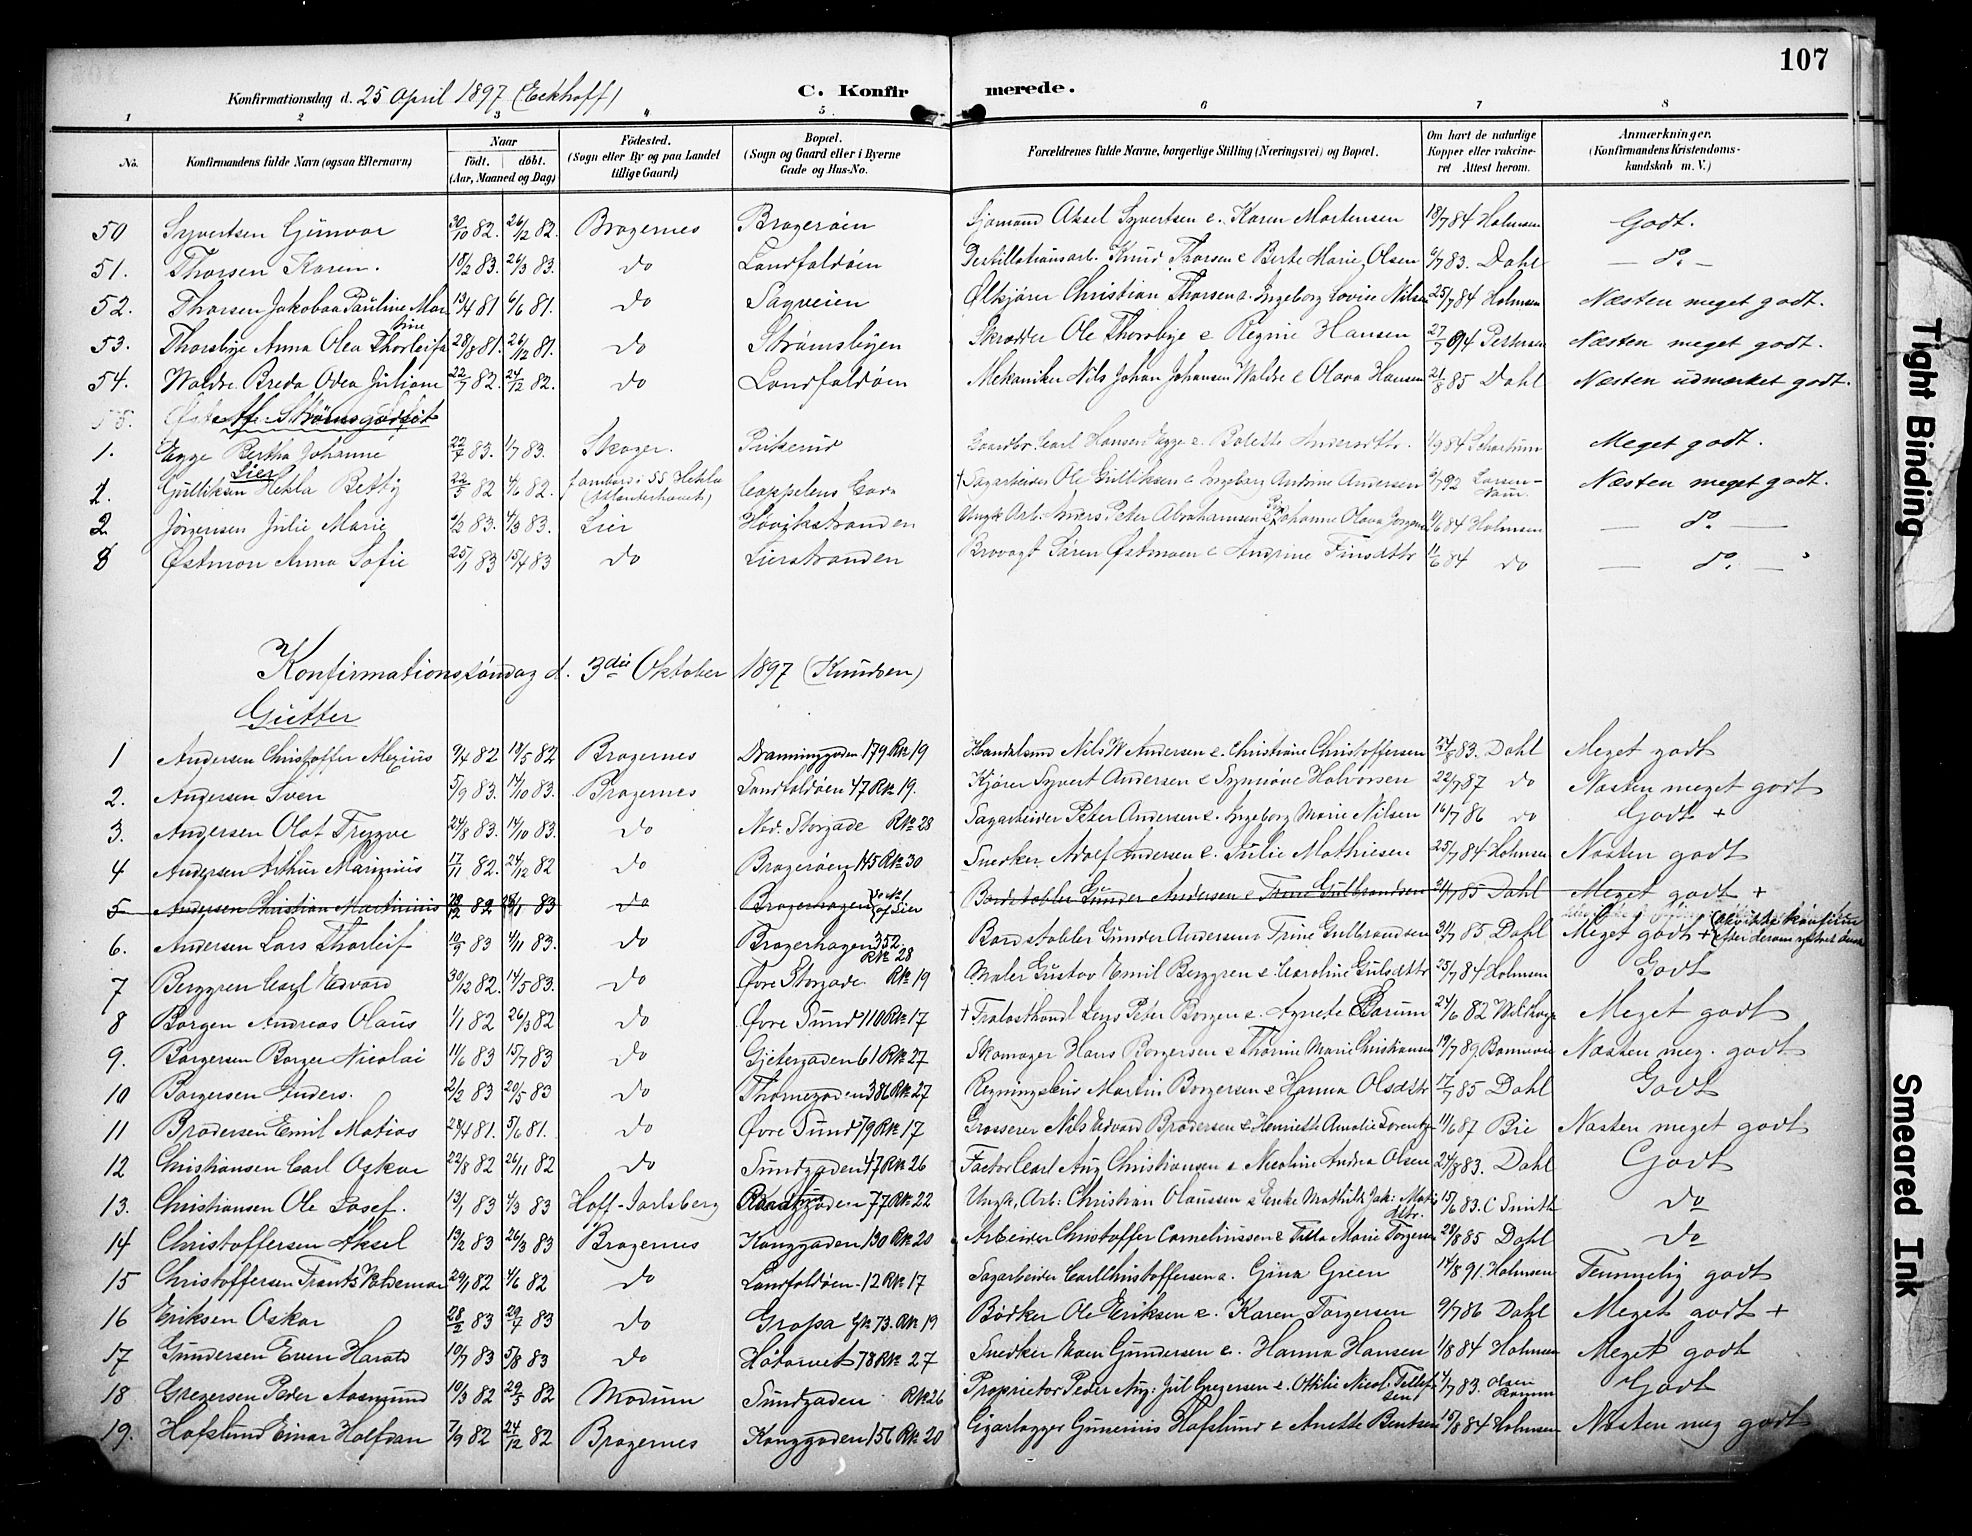 107
Konfirmationsdag d. 25 April 1897 (Eckhoff) C. Konfirmerede.
1 2 3 4 5 6 7 8
No. Konfirmandens fulde Navn (ogsaa Efternavn) Naar født. døbt. (Aar, Maaned og Dag) Fødested. (Sogn eller By og paa Landet tillige Gaard) Bopæl. (Sogn og Gaard eller i Byerne Gade og Hus-No. Forældrenes fulde Navne, borgerlige Stilling (Næringsvei) og Bopæl. Om havt de naturlige Kopper eller vakcineret Attest herom. Anmærkninger. (Konfirmandens Kristendomskundskab m. V.)
50 Syvertsen Gunvor 30/10 82. 26/12 82. Bragernes Bragerøen Sjømand Aksel Syvertsen e. Karen Mortensen 18/7 84 Holmsen Godt.
51. Thorsen Karen. 18/2 83. 26/3 83. do Landfaldøen Destillationsarb. Knud Thorsen e Berte Marie Olsen 6/7 83. Dahl — do —
52. Thorsen Jakobaa Pauline Martine 13/4 81 6/6 81. do Sagveien Ølkjører Christian Thorsen e. Ingeborg Lovise Nilsen 25/7 84 Holmsen Næsten meget godt.
53. Thorsbye Anna Olea Thorleifa 28/8 81. 26/12 81. do Strømsbyen Skrædder Ole Thorsbye e Regine Hansen 27/7 94 Petersen Næsten meget godt.
54. Waldre Breda Odea Juliane 22/7 82. 24/12 82. do Landfaldøen Mekaniker Nils Johan Johansen Waldre e Olava Hansen 21/8 85 Dahl Næsten udmærket godt.
55. Af Strømsgodset
1. Egge Bertha Johanne 22/7 83. 1/7 83. Skoger. Gaardbr. Carl Hansen Egge e. Bolette Andersdtr. 1/9 84 Scharlum Meget godt.
Lier
2. Gulliksen Hekla Betty 22/5 82 4/6 82. f. ombord i SS Hekla (Atlanterhavet) Cappelens + Sagarbeider Ole Gulliksen e Ingeborg Antine Andersen 5/7 92 Larsen Næsten meget godt.
2 Jørgensen Julie Marie 83. 4/3 83. Lier Høvikstranden Ungk. Arb. Anders Peter Abrahamsen Johanne Olava Jørgens 11/6 84 Holmsen — do —
8 Østmon Anna Sofie 25/1 83 15/4 83 do Lierstranden Brovagt Søren Østmoen e Andrine Finsdttr 11/6 84 do — do —
Konfirmationssøndag d. 3die Oktober 1897 (Knudsen)
Gutter
1 Andersen Christoffer Alexius 9/4 82 19/5 82 Bragernes Dronninggaden 179 Rk 19 Handelsmd Nils W Andersen e. Christiane Christoffersen 24/8 83. Dahl Meget godt
2. Andersen Sven 5/9 83. 14/10 83. Bragernes Landfaldøen 47 Rk 19. Kjører Syvert Andersen e Synnøve Halvorsen 22/7 87 do Næsten meget godt
3. Andersen Olaf Trygve 24/8 83. 14/10 83. do Ned. Storgade Rk 28 Sagarbeider Peter Andersen e. Ingeborg Marie Nilsen 16/7 86 do Godt +
4 Andersen Arthur Marinius 17/11 82. 24/12 82 do Bragerøen 145 Rk 30 Snedker Adolf Andersen e. Julie Mathiesen 25/7 84 Holmsen Næsten godt
5 Andersen Christian Martinius 28/12 82 83 do Bragerhagen af Lier Bordstabler Gunder Andersen e Trine Gulbrandsen 3/7 85 Dahl Meget godt +
6. Andersen Lars Thorleif 10/9 83 4/11 83. do Bragerhagen 352 Rk 28 Bordstabler Gunder Andersen e Trine Gulbrandsen 3/7 85 Dahl Meget godt +
7 Berggren Carl Edvard 30/12 82. 14/5 83. do Øvre Storgade. Rk 19 Maler Gustav Emil Berggren e. Caroline Gulsdttr 25/7 84 Holmsen Godt
8 Borgen Andreas Olaus 1/1 82 26/3 82 do Øvre Sund 110 Rk 17 + Trælasthandl Lars Peter Borgen e. Agnete Bærum 24/6 82 Meget godt
9. Borgersen Borger Nicolai 11/6 83 15/7 83 do Gjetergaden 61 Rk 27 Skomager Hans Borgersen e Thorine Marie Christiansen 19/7 89 Bonnevie Næsten meg. godt
10 Borgersen Anders. 2/2 83 20/5 83 do Thornegaden 386 Rk 27 Martin Borgersen e Hanna Olsdttr 17/7 85 Dahl Godt
11 Brodersen Emil Matias 28/4 81. 5/6 81. do Øvre Sund 79 Rk 17 Grosserer Nils Edvard Brodersen e. Henriette Amalie Lorentz 11/6 87 Bie Næsten meget godt
12 Christiansen Carl Oskar 22/8 82 26/11 82 do Sundgaden 47 Rk 26 Factor Carl Aug Christiansen e Nicoline Andrea Olsen 24/8 83. Dahl Godt
13. Christiansen Ole Josef. 13/1 83 4/3 83 Hoff-Jarlsberg 77 Rk 22 Ungk. Arb: Christian Olaussen e Mathilde Jak: dttr. 15/6 83. C Smith do
14 Christoffersen Aksel 13/2 83 26/3 83 Bragernes Konggaden 130 Rk 20 Arbeider Christoffer Corneliussen e Tilla Marie Torgersen 28/8 85 Dahl do
15 Christoffersen Frants Valdemar 29/1 82 4/6 82 do Landfaldøen 12 Rk 17 Sagarbeider Carl Christoffersen e. Gina Green 14/8 91. Holmsen Temmelig godt
16 Eriksen Oskar 28/2 83 29/7 83 do Gropa Gk 73. Rk 19 Bødker Ole Eriksen e. Karen Torgersen 9/7 86 Dahl Meget godt +
17 Gundersen Even Harald 10/7 83 5/8 83 do Høtorvet 78 Rk 27 Snedker Even Gundersen e. Hanna Hansen 1/8 84 Holmsen Meget godt
18 Gregersen Peder Aasmund 10/3 82 29/5 82 Modum Sundgaden Rk 26 Proprietor Peder Aug: Jul Gregersen e. Otilie Nicol. Tellefsen 7/7 83. Olsen Godt
19. Hofslund Einar Halfdan 7/9 82 24/12 82 Bragernes Konggaden 156 Rk 20 Cigarlægger Gunerius Hofslund e Anette Bentsen 15/8 84 Holmsen Næsten meg godt
Tight Binding
Smeared Ink